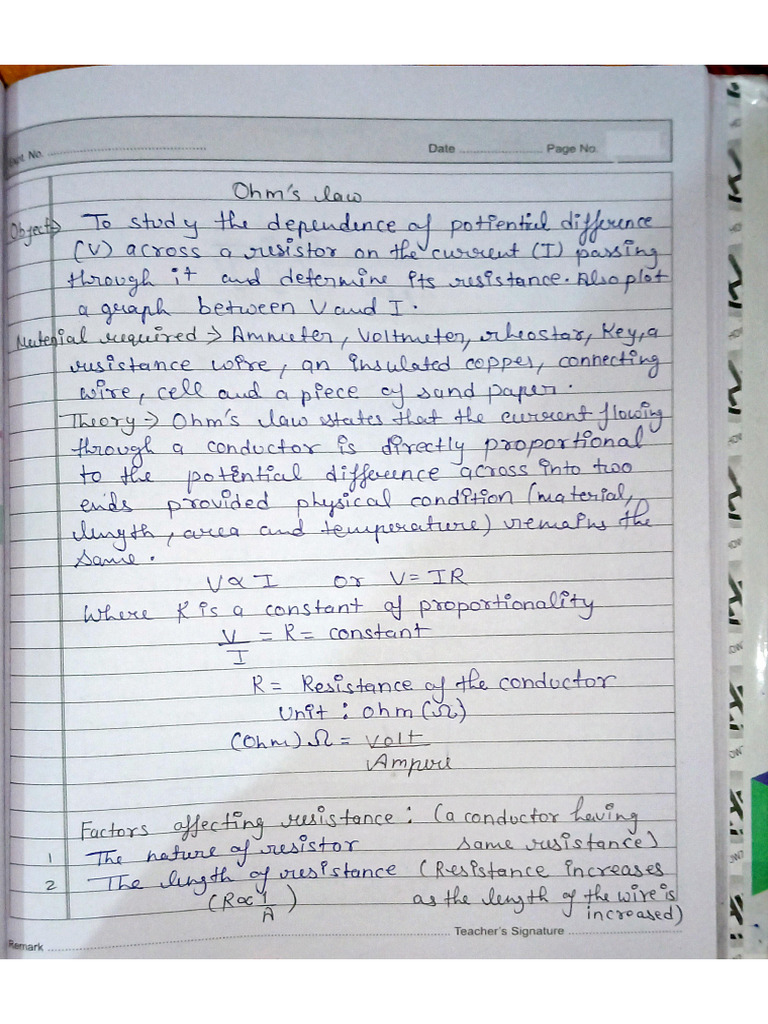 Expt. No. ........................................ Date ..................... Page No.
Ohm's law
Object → To study the dependence of potiential difference
(V) across a resistor on the current (I) passing
through it and determine its resistance. Also plot
a graph between V and I.
Material required → Ammeter, Voltmeter, rheostar, Key, a
resistance wire, an insulated copper, connecting
wire, cell and a piece of sand paper.
Theory → Ohm's law states that the current flowing
through a conductor is directly proportional
to the potential difference across into two
ends provided physical condition (material,
length, area and temperature) remains the
same.
V ∝ I or V = IR
Where R is a constant of proportionality
V/I = R = constant
R = Resistance of the conductor
Unit : ohm (Ω)
(Ohm) Ω = Volt/Ampere
Factors affecting resistance : (a conductor having
1 The nature of resistor same resistance)
2 The length of resistance (Resistance increases
(R ∝ 1/A) as the length of the wire is
increased)
Remark ........................................ Teacher's Signature ........................